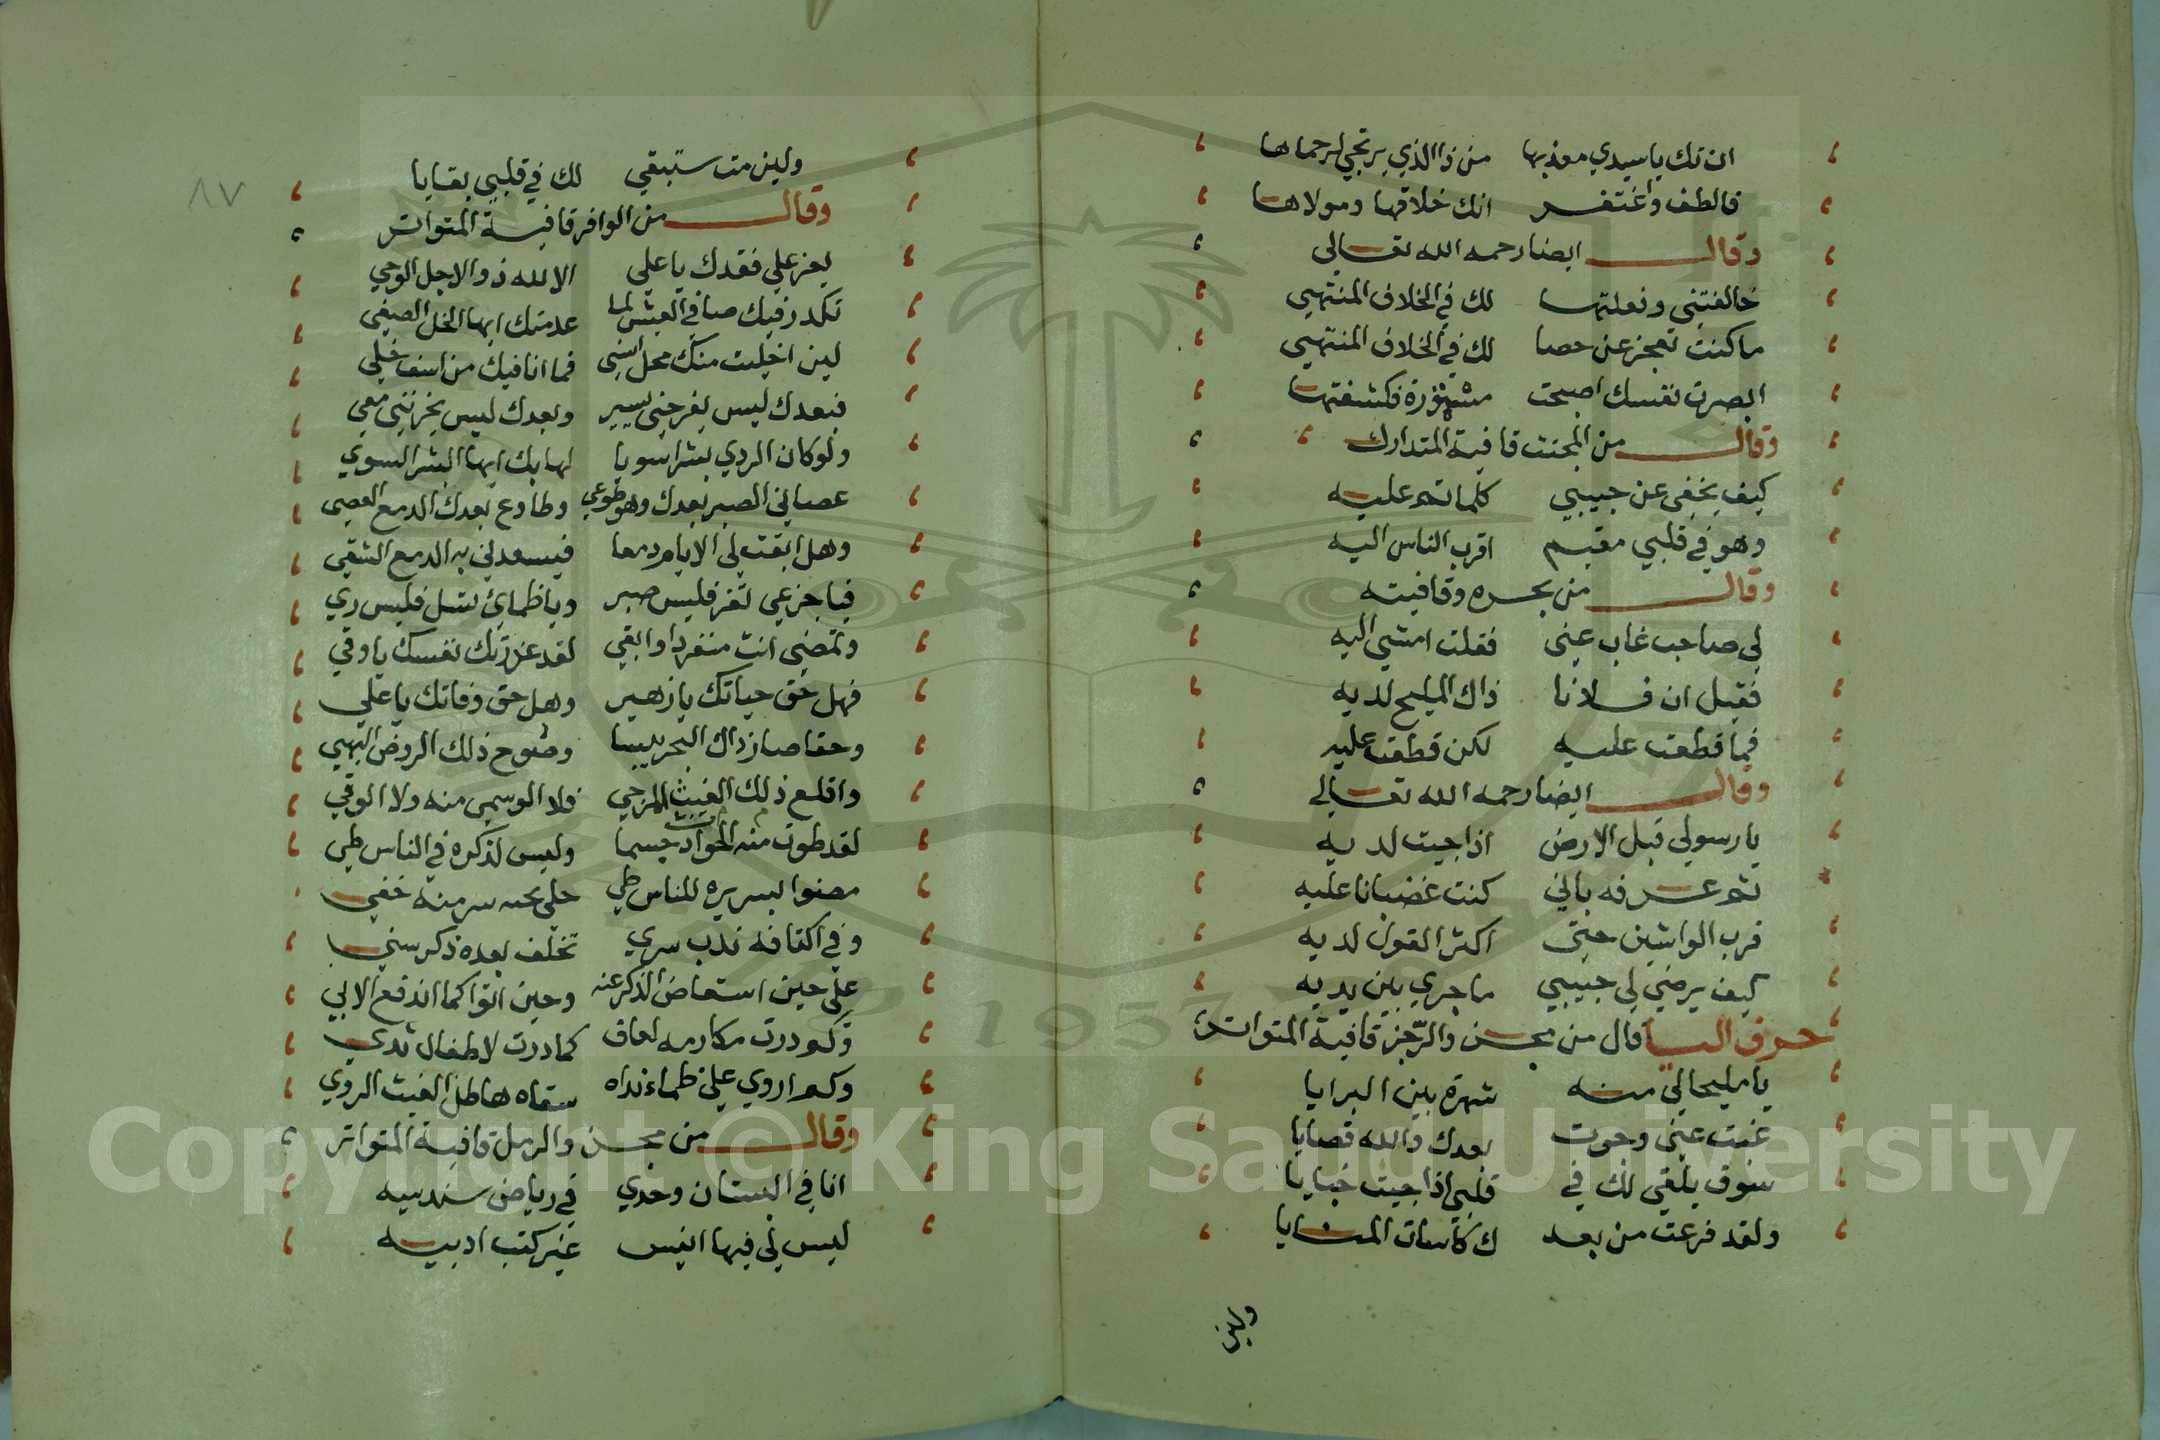 ان تك يا سيدي معذبها من ذا الذي يرتجي لرحماها
فالطف واغتفر انك خلاقها ومولاها
وقال ايضا رحمه الله تعالى
خالفتني وفعلتها لك في الخلاف المنتهي
ما كنت تعجز عن حصا لك في الخلاف المنتهي
ابصرت نفسك اصبحت مشهورة فكشفتها
وقال من المجتث قافية المتدارك
كيف يخفى عن حبيبي كلما تم عليه
وهو في قلبي مقيم اقرب الناس اليه
وقال من بحره وقافيته
لي صاحب غاب عني فقلت امشي اليه
فقيل ان فلانا ذاك المليح لديه
فما قطعت عليه لكن قطعت عليه
وقال ايضا رحمه الله تعالى
يا رسولي قبل الارض اذا جيت لديه
ثم عرفه باني كنت غضبانا عليه
قرب الواشين حتى اكثر القول لديه
كيف يرضى لي حبيبي ما جرى بين يديه
حرف اليا قال من مجزو الرجز قافية المتواتر
يا مليحا لي منه شهرة بين البرايا
غبت عني وجرت بعدك والله قضايا
سوف يلقى لك في قلبي اذا جيت خبايا
ولقد فرعت من بعد ك كاسات المنايا
ولين
٨٧
ولين مت ستبقي لك في قلبي بقايا
وقال من الوافر قافية المتواتر
يعز علي فقدك يا علي الا لله ذو الاجل الوحي
تكدر فيك صافي العيش لما عدمتك ايها الخل الصفي
لين اخليت منك محل انسي فما انا فيك من اسف خلي
فبعدك ليس يفرحني بسير وبعدك ليس يحزنني معي
ولو كان الردي بشرا سويا لهابك ايها البشر السوي
عصاني الصبر بعدك وهو طوعي وطاوع بعدك الدمع العصي
وهل ابقت لي الايام دمعا فيسعدني به الدمع الشقي
فيا جزعي تعز فليس صبر ويا ظمائ تسل فليس ري
وتمضي انت منفردا وابقي لقد غررتك نفسك يا وفي
فهل حق حياتك يا زهير وهل حق وفاتك يا علي
وحقا صار ذاك البحر يبسا وصوح ذلك الروض البهي
واقلع ذلك الغيث المرجي فلا الوسمي منه ولا الولي
لقد طوت منه الحوادث جسما وليس لذكره في الناس طي
مضوا بسريره للناس طي علي سر منه خفي
وفي اكتافه ندب سري تخلف بعده ذكر سني
علي حين استفاض الذكر عنه وحين اتوا كما اندفع الاتي
وكم درت مكارمه لعاف كما درت لاطفال ثدي
وكم اروي علي ظماء نداه سقاه هاطل الغيث الروي
وقال من مجزو الرمل قافية المتواتر
انا في البستان وحدي في رياض سندسيه
ليس لي فيها انيس غير كتب ادبيه
Copyright © King Saud University
1957